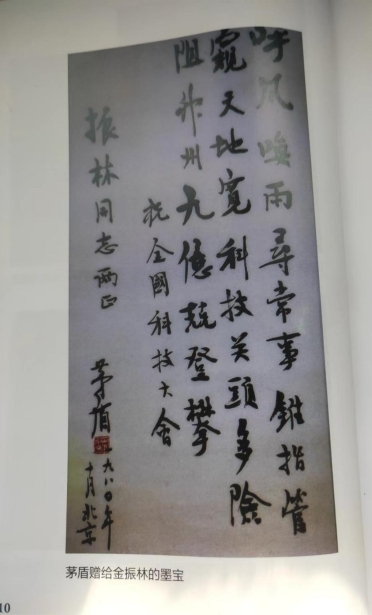 呼风唤雨尋常事錐指管
窺天地寬科技关頭多險
阻神州九億競登攀
祝全國科技大會
振林同志两正
茅盾 一九八〇年
十月北京
茅盾赠给金振林的墨宝
10